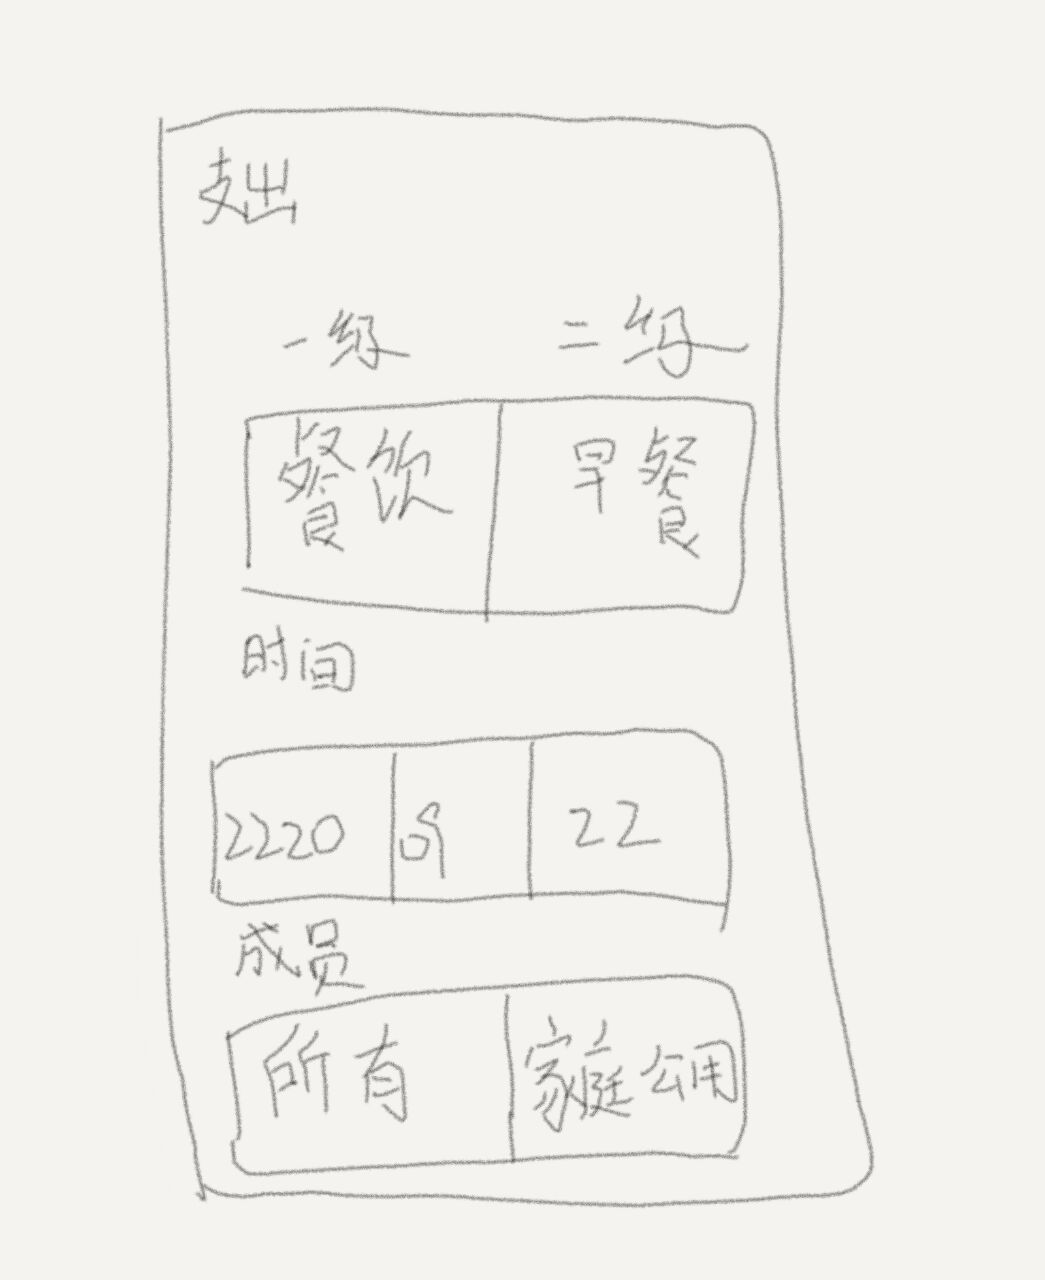 支出
一级 二级
餐饮 早餐
时间
2220 09 22
成员
所有 家庭公用